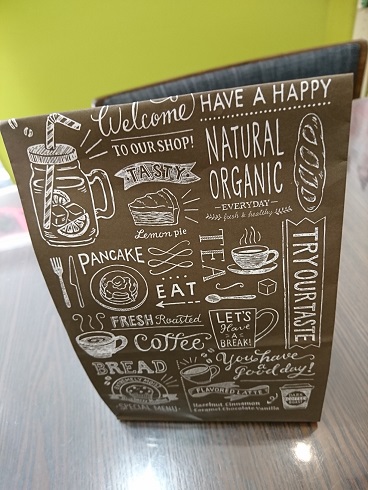 Welcome
TO OUR SHOP!
TASTY
Lemon pie
HAVE A HAPPY
NATURAL
ORGANIC
EVERYDAY
fresh & healthy
PANCAKE
EAT
TEA
TRY OUR TASTE
FRESH Roasted
Coffee
LET'S
Have
A
BREAK!
BREAD
SPECIAL MENU
You have
a
good day!
FLAVORED LATTE
Hazelnut Cinnamon
Caramel Chocolate Vanilla